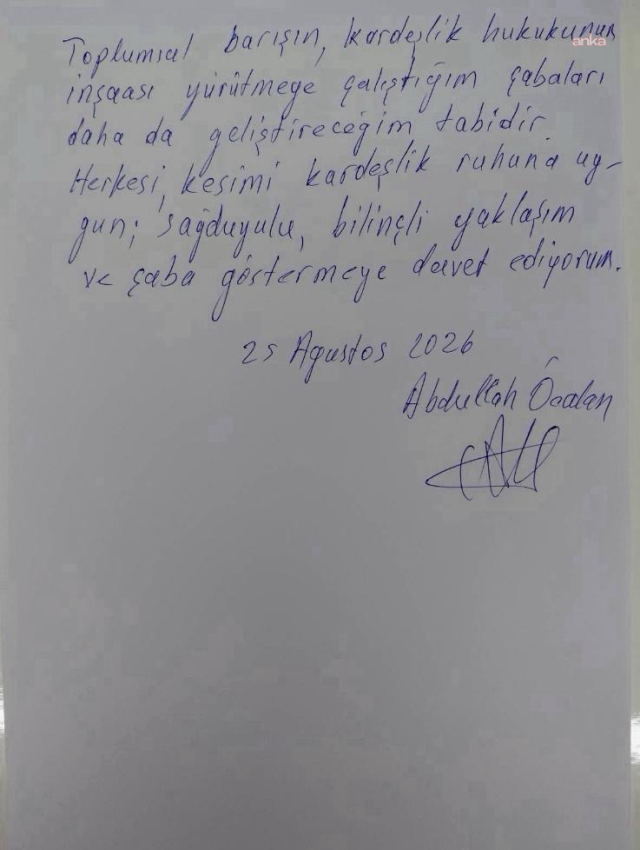 Toplumsal barışın, kardeşlik hukukunun
anka
inşaası yürütmeye çalıştığım çabaları
daha da geliştireceğim tabidir.
Herkesi, kesimi kardeşlik ruhuna uy-
gun; sağduyulu, bilinçli yaklaşım
ve çaba göstermeye davet ediyorum.
25 Ağustos 2026
Abdullah Öcalan